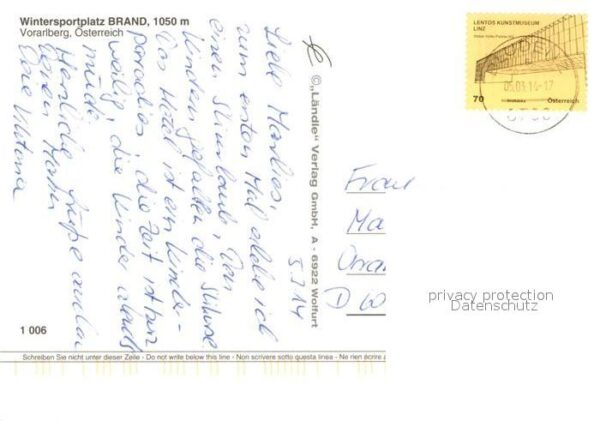 Wintersportplatz BRAND, 1050 m
Vorarlberg, Österreich
5.3.14
Liebe Marlies,
zum ersten Mal erlebe ich
einen Skiurlaub. Den
Kindern gefallen die Skikurse
Das Hotel ist ein Kinder-
paradies die Zeit ist kurz
weilig, die Kinder abends
müde.
Herzliche Grüße auch an
Deinen
Deine Viktoria
1 006
© „Ländle" Verlag GmbH, A - 6922 Wolfurt
LENTOS KUNSTMUSEUM
LINZ
70
Österreich
05.03.14-17
6700
Frau
Ma
D
privacy protection
Datenschutz
Schreiben Sie nicht unter dieser Zeile - Do not write below this line - Non scrivere sotto questa linea - Ne rien écrire